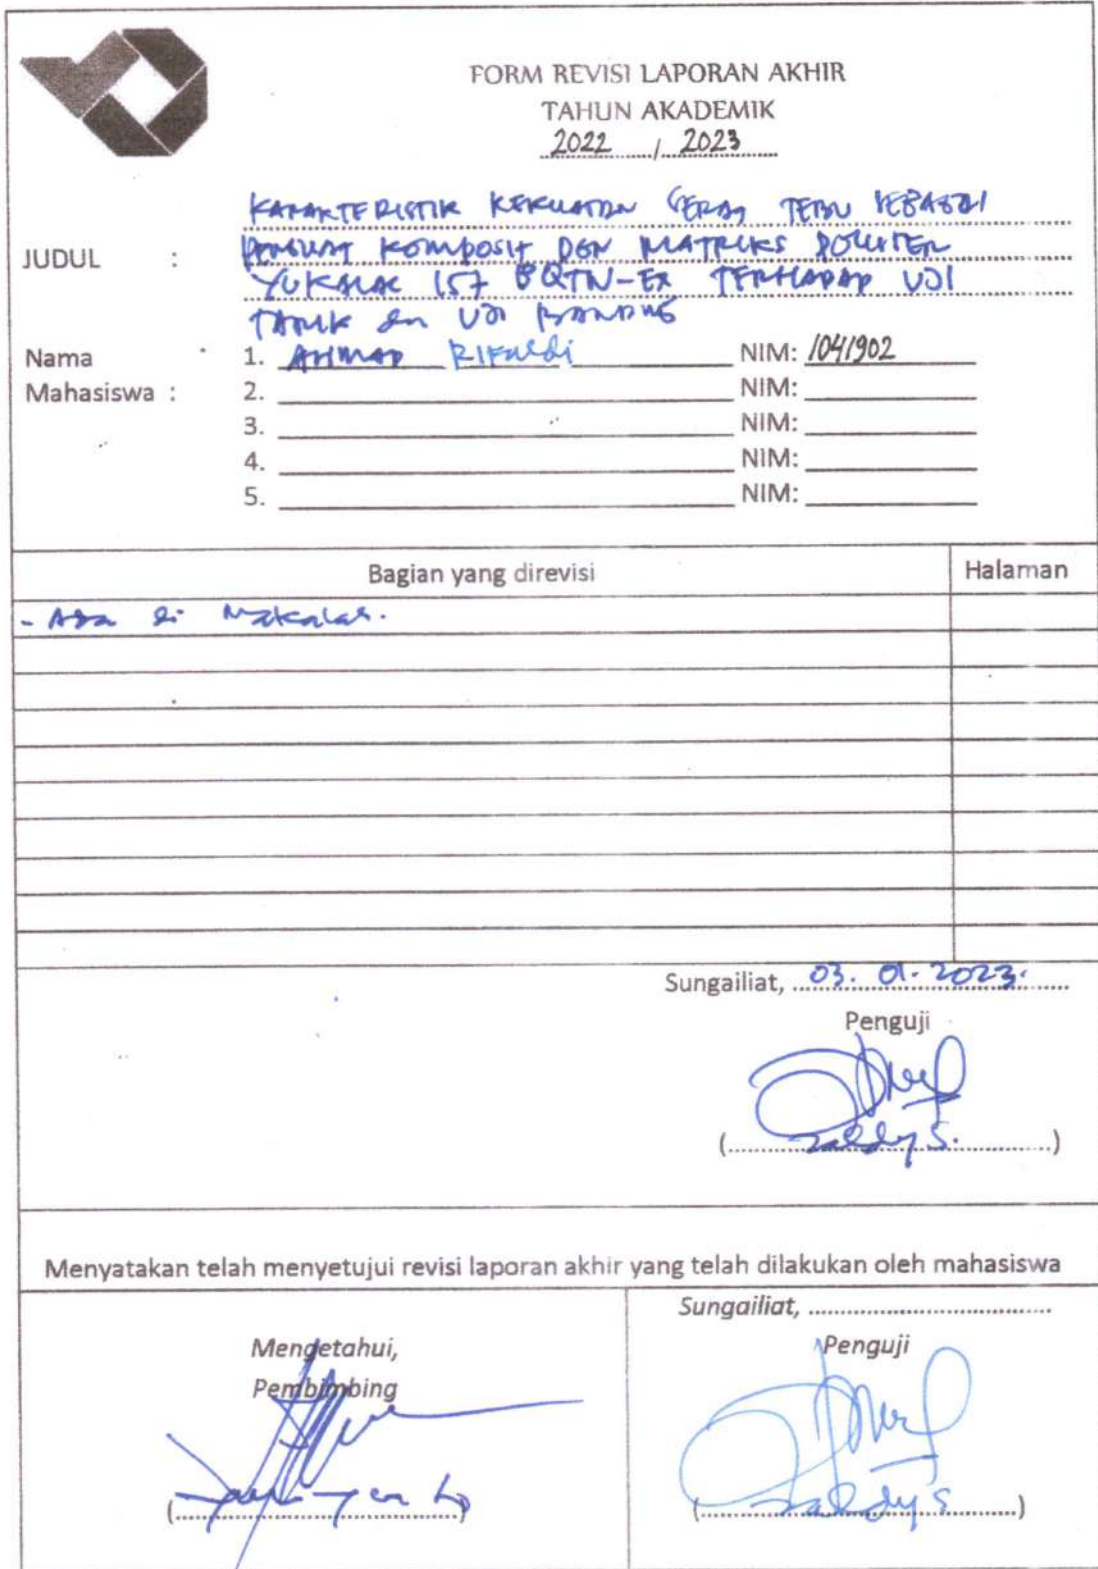 FORM REVISI LAPORAN AKHIR
TAHUN AKADEMIK
2022 / 2023
KARAKTERISTIK KEKUATAN SERAT TEBU SEBAGAI
JUDUL : PENGUAT KOMPOSIT DGN MATRIKS POLIESTER
YUKALAC 157 BQTN-EX TERHADAP UJI
TARIK dan UJI BANDING
Nama Mahasiswa :
1. AHMAD RIFALDI NIM: 1041902
2. NIM:
3. NIM:
4. NIM:
5. NIM:
Bagian yang direvisi Halaman
- Ada di Makalah.
Sungailiat, 03. 01. 2023.
Penguji
(Zaldy S.)
Menyatakan telah menyetujui revisi laporan akhir yang telah dilakukan oleh mahasiswa
Sungailiat,
Mengetahui,
Pembimbing
Penguji
(Zaldy S)